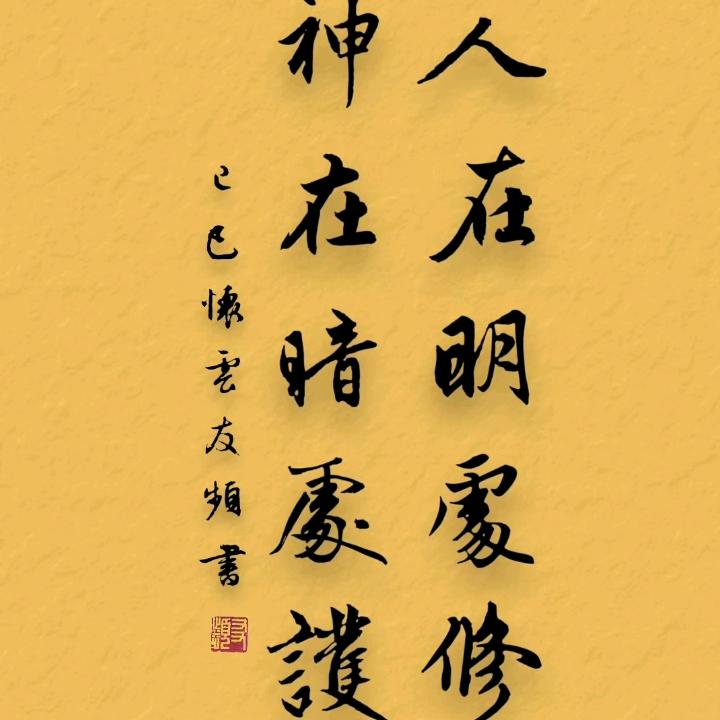 人在明處修
神在暗處護
乙巳懷雲友頻書